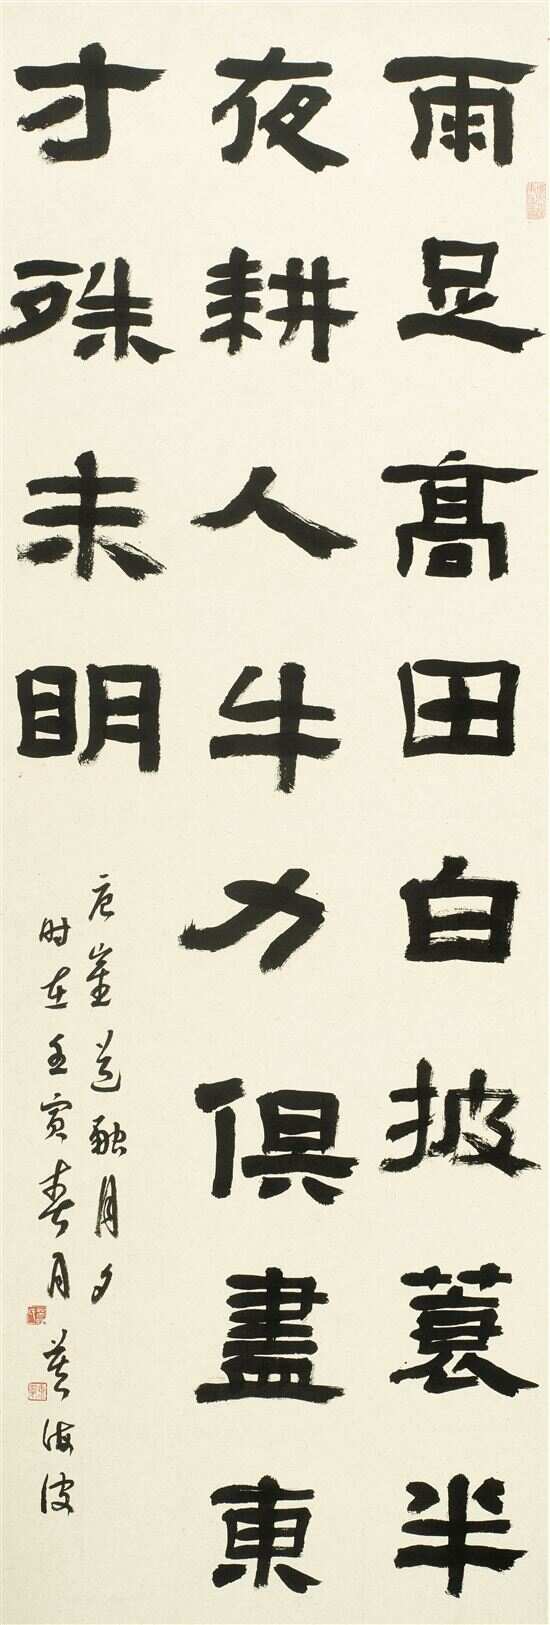 雨足高田白披蓑半
夜耕人牛力俱盡東
才殊未明
唐崔道融月夕
时在壬寅春月 黄海波